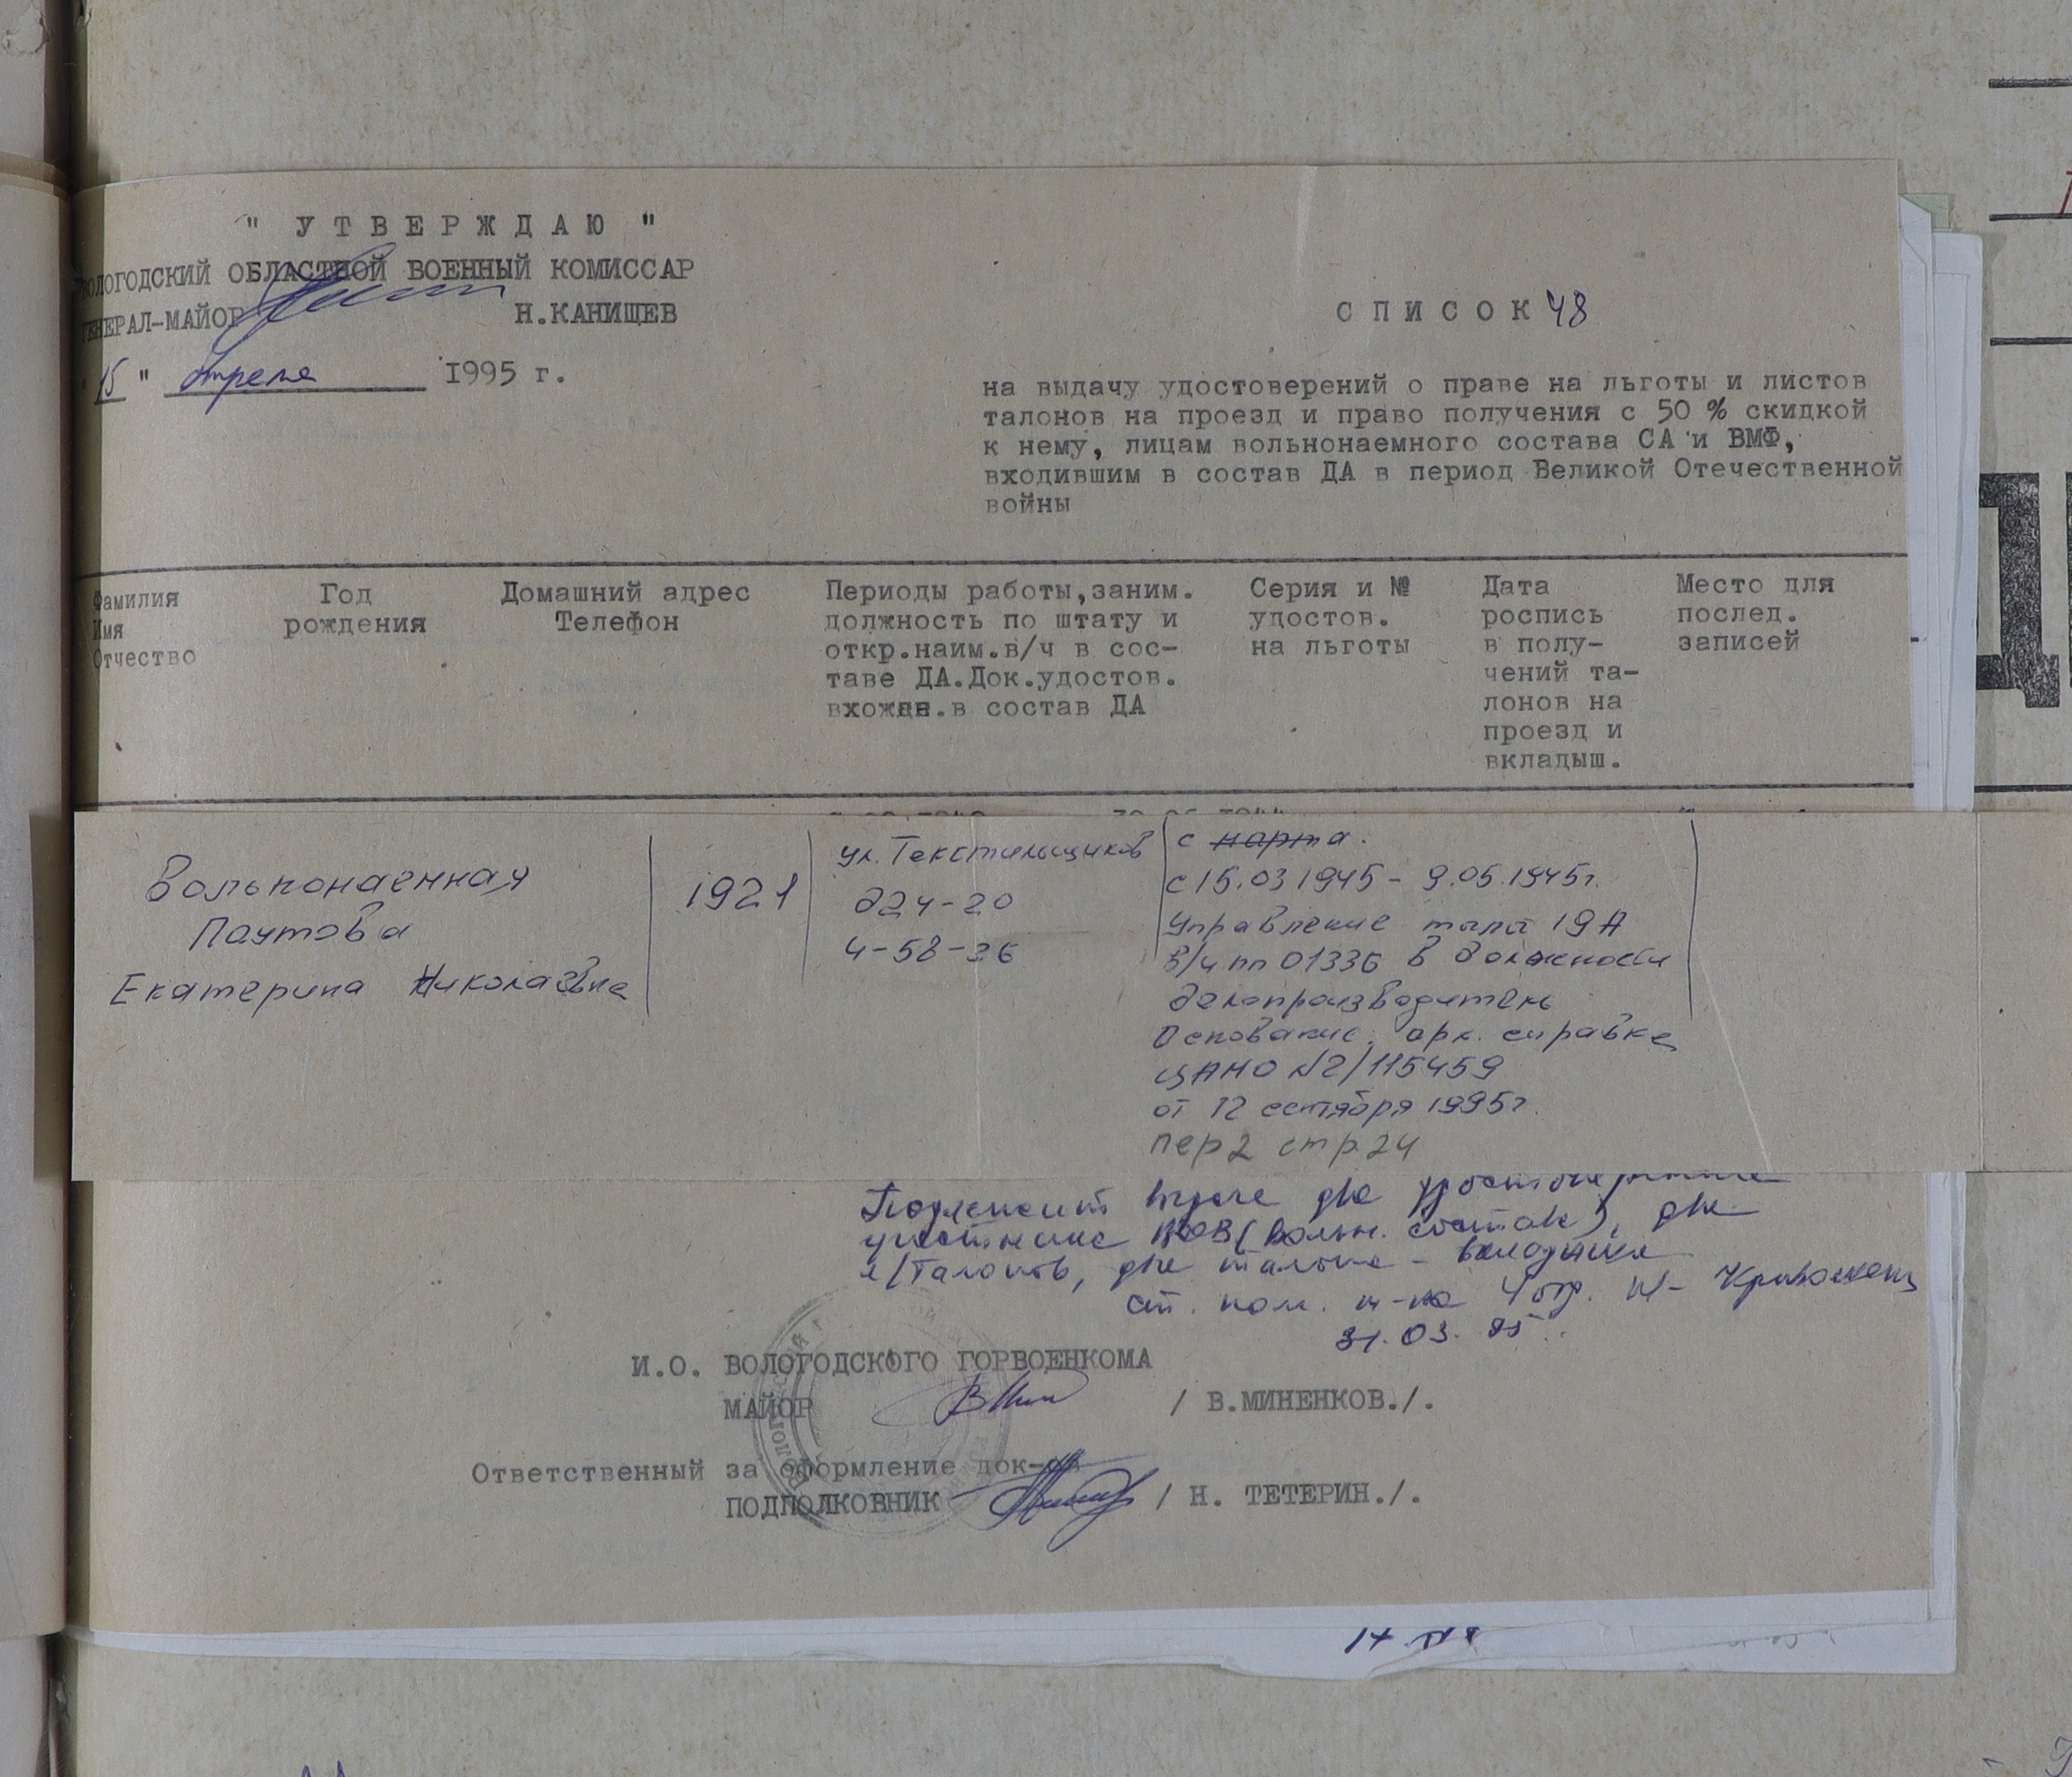 " УТВЕРЖДАЮ "
ВОЛОГОДСКИЙ ОБЛАСТНОЙ ВОЕННЫЙ КОМИССАР
ГЕНЕРАЛ-МАЙОР Н.КАНИЩЕВ
" 15 " апреля 1995 г.
СПИСОК 48
на выдачу удостоверений о праве на льготы и листов
талонов на проезд и право получения с 50 % скидкой
к нему, лицам вольнонаемного состава СА и ВМФ,
входившим в состав ДА в период Великой Отечественной
войны
Фамилия
Имя
Отчество
Год
рождения
Домашний адрес
Телефон
Периоды работы,заним.
должность по штату и
откр.наим.в/ч в сос-
таве ДА.Док.удостов.
вхожден.в состав ДА
Серия и №
удостов.
на льготы
Дата
роспись
в полу-
чений та-
лонов на
проезд и
вкладыш.
Место для
послед.
записей
Вольнонаемная
Паутова
Екатерина Николаевна
1921
ул. Текстильщиков
д24-20
4-58-36
с марта.
с 15.03 1945 - 9.05.1945г.
Управление тыла 19А
в/ч пп 01336 в должности
делопроизводитель
Основание: арх. справка
ЦАМО №2/115459
от 12 сентября 1995г.
пер 2 стр. 24
Подлежит выдаче два удостоверения
участника ВОВ (вольн. состав), два
л/талонов, два талона - вкладыша
ст. пом. н-ка 4 отд.
31.03.95
И.О. ВОЛОГОДСКОГО ГОРВОЕНКОМА
МАЙОР / В.МИНЕНКОВ./.
Ответственный за оформление док-ов
ПОДПОЛКОВНИК / Н. ТЕТЕРИН./.